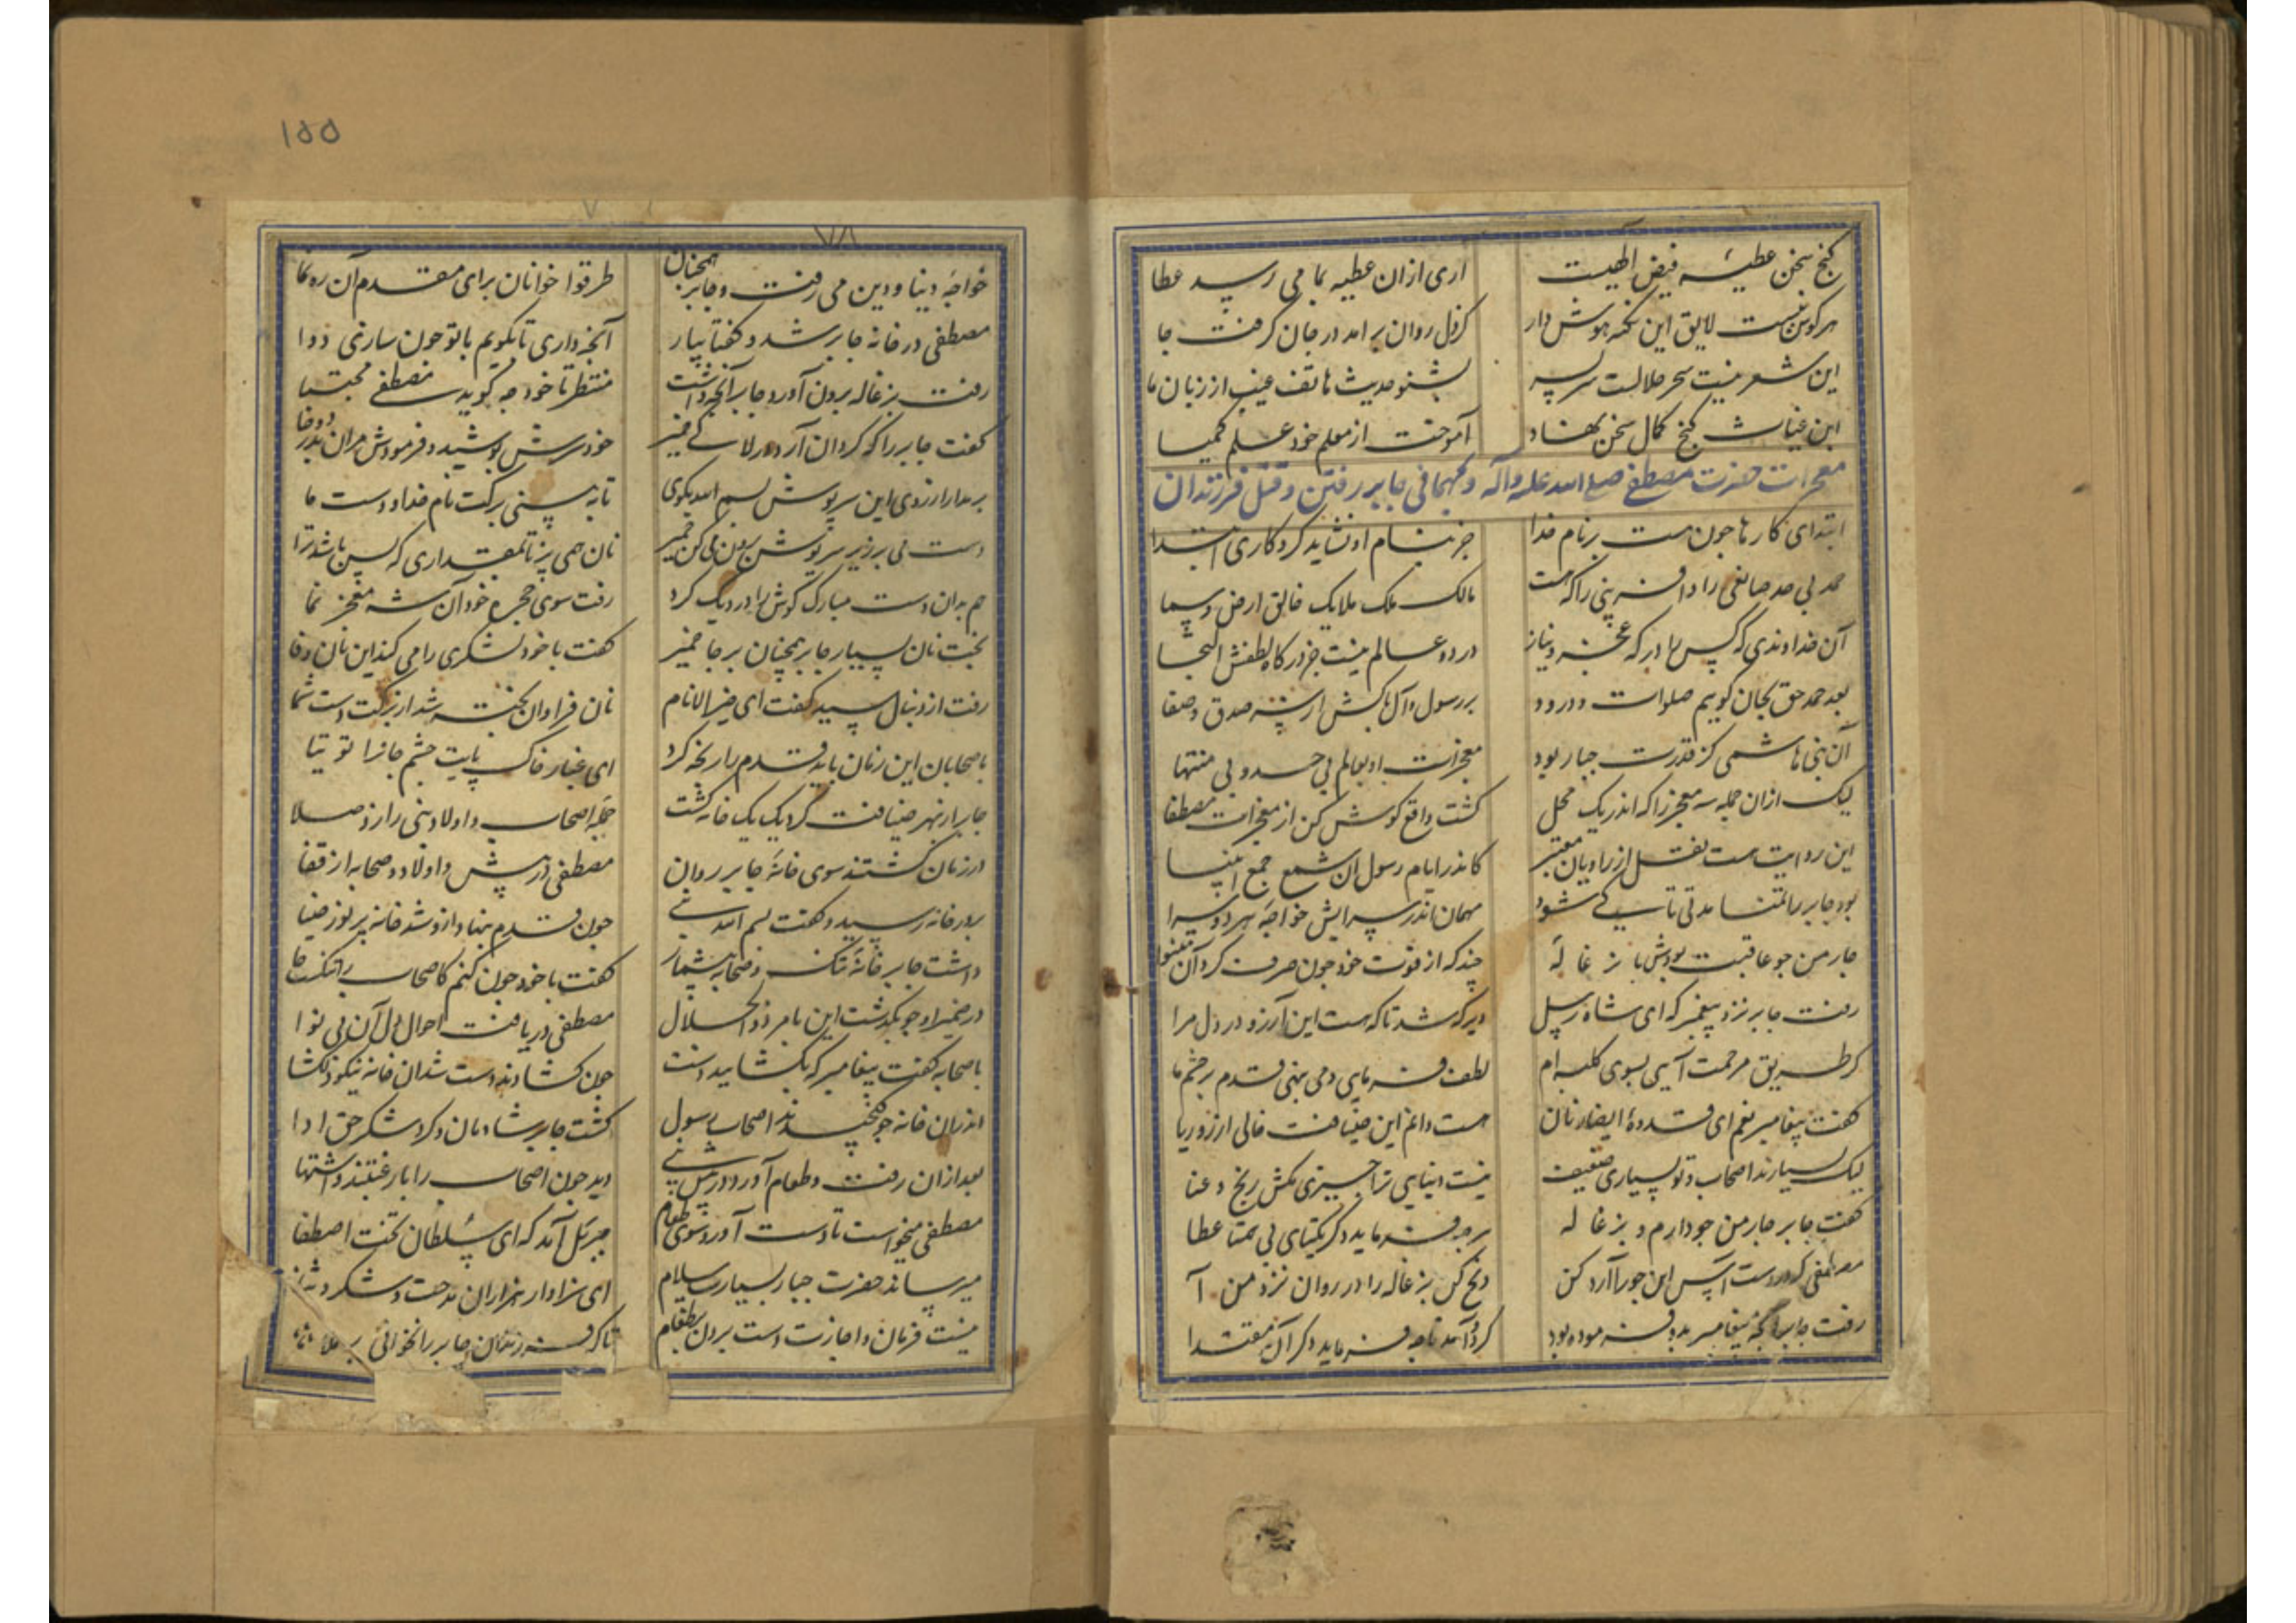 ۱۵۵
۷۸
کنج سخن عطیـه فیض الهیست اری ازان عطیه بما می رسد عطا
هرکوش نیست لایق این نکته هوش دار کز دل روان برامد در جان کرفت جا
این شعر نیست سحر حلالست سربسر بشنو حدیث هاتف غیب از زبان ما
ابن غیاث کنج کمال سخن نهاد آموخت از معلم خود علم کیمیا
معجزات حضرت مصطفی صلی الله علیه وآله و بمهمانی جابر رفتن و قتل فرزندان
ابتدای کارها چون هست برنام خدا جز بنام او نشاید کرد کاری ابتدا
حمد بی حد صانعی را داشتن که هست مالک ملک ملایک خالق ارض و سما
آن خداوندی که کس را در که عجز و نیاز در دو عالم نیست جز درکاه لطفش التجا
بعد حمد حق بجان کویم صلوات و درود بر رسول و آل پاکش از سر صدق و صفا
آن نبی هاشمی کز قدرت جبار بود معجزات او بعالم بی حد و بی منتها
لیک ازان جمله سه معجز را که اندر یک محل کشت واقع کوش کن از معجزات مصطفا
این روایت هست نقل از راویان معتبر کاندر ایام رسول ان شمع جمع انبیا
بود جابر را تمنا مدتی تا سید کی شود مهمان اندر سرایش خواجه هر دو سرا
چار من جو عاقبت بودش با بزغاله چند که از قوت خود چون صرف کرد آن بینوا
رفت جابر نزد پیغمبر که ای شاه رسل دیر که شد تا که هست این آرزو در دل مرا
کز طریق مرحمت آیی بسوی کلبه ام لطف فرمایی و می نهی قدم بر چشم ما
کفت پیغامبر نعم ای قدوهٔ انصار نان هست دانم این ضیافت خالی از زور و ریا
لیک بسیارند اصحاب و تو بسیاری ضعیف نیست دنیایی ترا چیزی مکش رنج و عنا
کفت جابر چار من جو دارم و بزغاله هرچه فرماید دکر یکتای بی همتا عطا
مصطفی کردر دست آس این جو را آرد کن ذبح کن بزغاله را در روان نزد من آ
رفت جابر آنچه پیغامبر بدو فرموده بود کرد آمد تا چه فرماید دکر آن مقتدا
خواجه دنیا و دین می رفت و جابر همچنان طرقوا خوانان برای مقدم آن رهنما
مصطفی در خانه جابر شد و کفتا بیار آنچه داری تا بکویم با تو چون سازی دوا
رفت بزغاله برون آورد جابر آنچه داشت منتظر تا خود چه کوید مصطفی مجتبا
کفت جابر را که کردان آرد در لاکی خمیر خود سرش پوشید و فرمودش مران بدرو خفا
برمدار از روی این سرپوش بسم الله بکوی تا به بینی برکت نام خدا و دست ما
دست می بر زیر سرپوش برون می کن خمیر نان همی پز تا بمقداری که بس باشد ترا
هم بدان دست مبارک کوش را در دیک کرد رفت سوی حجره خود آن شه معجز نما
پخت نان بسیار جابر همچنان بر جا خمیر کفت با خود لشکری را می کند این نان وفا
رفت از دنبال سید کفت ای خیر الانام نان فراوان پخته شد از برکت دست شما
با صحابان این زمان باید قدم را رنجه کرد ای غبار خاک پایت چشم جانرا توتیا
جابر از بهر ضیافت کرد یک یک خانه کشت جمله اصحاب و اولاد نبی را زد صلا
در زمان کشتند سوی خانهٔ جابر روان مصطفی در پیش و اولاد و صحابه از قفا
بر در خانه رسید و کفت بسم الله نبی چون قدم بنهاد ازو شد خانه پر نور ضیا
داشت جابر خانهٔ تنک و صحابه بیشمار کفت با خود چون کنم کاصحاب را تنکست جا
در ضمیر او چو بکذشت این بامر ذوالجلال مصطفی دریافت احوال دل آن بی نوا
با صحابه کفت پیغامبر که بکشایید دست چون کشادند دست شد ان خانه نیکو دلکشا
اندران خانه چو کنجیدند اصحاب رسول کشت جابر شادمان و کرد شکر حق ادا
بعد ازان رفت و طعام آورد در پیش نبی دید چون اصحاب را با رغبتند و اشتها
مصطفی میخواست تا دست آورد سوی طعام جبرئیل آمد که ای سلطان تخت اصطفا
میرساند حضرت جبار بسیارت سلام ای سزاوار هزاران مدحت و شکر و ثنا
نیست فرمان و اجازت دست بردن بطعام تا که فرزندان جابر را نخوانی